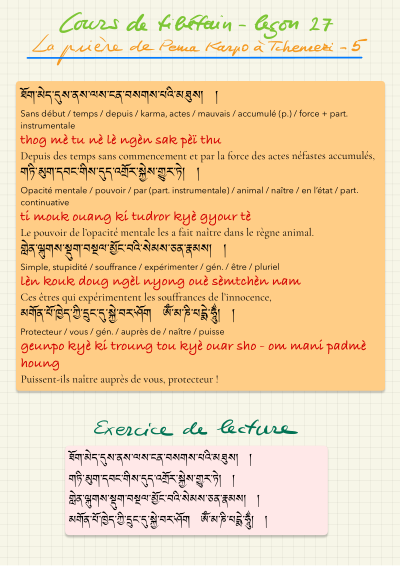 Cours de tibétain - leçon 27
La prière de Pema Karpo à Tchenrezi - 5
ཐོག་མེད་དུས་ནས་ལས་ངན་བསགས་པའི་མཐུས།   །
Sans début / temps / depuis / karma, actes / mauvais / accumulé (p.) / force + part.
instrumentale
thog mè tu nè lè ngèn sak pèï thu
Depuis des temps sans commencement et par la force des actes néfastes accumulés,
གཏི་མུག་དབང་གིས་དུད་འགྲོར་སྐྱེས་གྱུར་ཏེ།   །
Opacité mentale / pouvoir / par (part. instrumentale) / animal / naître / en l'état / part.
continuative
ti mouk ouang ki tudror kyè gyour tè
Le pouvoir de l'opacité mentale les a fait naître dans le règne animal.
གླེན་ལྐུགས་སྡུག་བསྔལ་མྱོང་བའི་སེམས་ཅན་རྣམས།   །
Simple, stupidité / souffrance / expérimenter / gén. / être / pluriel
lèn kouk doug ngèl nyong ouè sèmtchèn nam
Ces êtres qui expérimentent les souffrances de l'innocence,
མགོན་པོ་ཁྱེད་ཀྱི་དྲུང་དུ་སྐྱེ་བར་ཤོག   ཨོཾ་མ་ཎི་པདྨེ་ཧཱུྃ།   །
Protecteur / vous / gén. / auprès de / naître / puisse
geunpo kyè ki troung tou kyè ouar sho - om mani padmè
houng
Puissent-ils naître auprès de vous, protecteur !
Exercice de lecture
ཐོག་མེད་དུས་ནས་ལས་ངན་བསགས་པའི་མཐུས།   །
གཏི་མུག་དབང་གིས་དུད་འགྲོར་སྐྱེས་གྱུར་ཏེ།   །
གླེན་ལྐུགས་སྡུག་བསྔལ་མྱོང་བའི་སེམས་ཅན་རྣམས།   །
མགོན་པོ་ཁྱེད་ཀྱི་དྲུང་དུ་སྐྱེ་བར་ཤོག   ཨོཾ་མ་ཎི་པདྨེ་ཧཱུྃ།   །